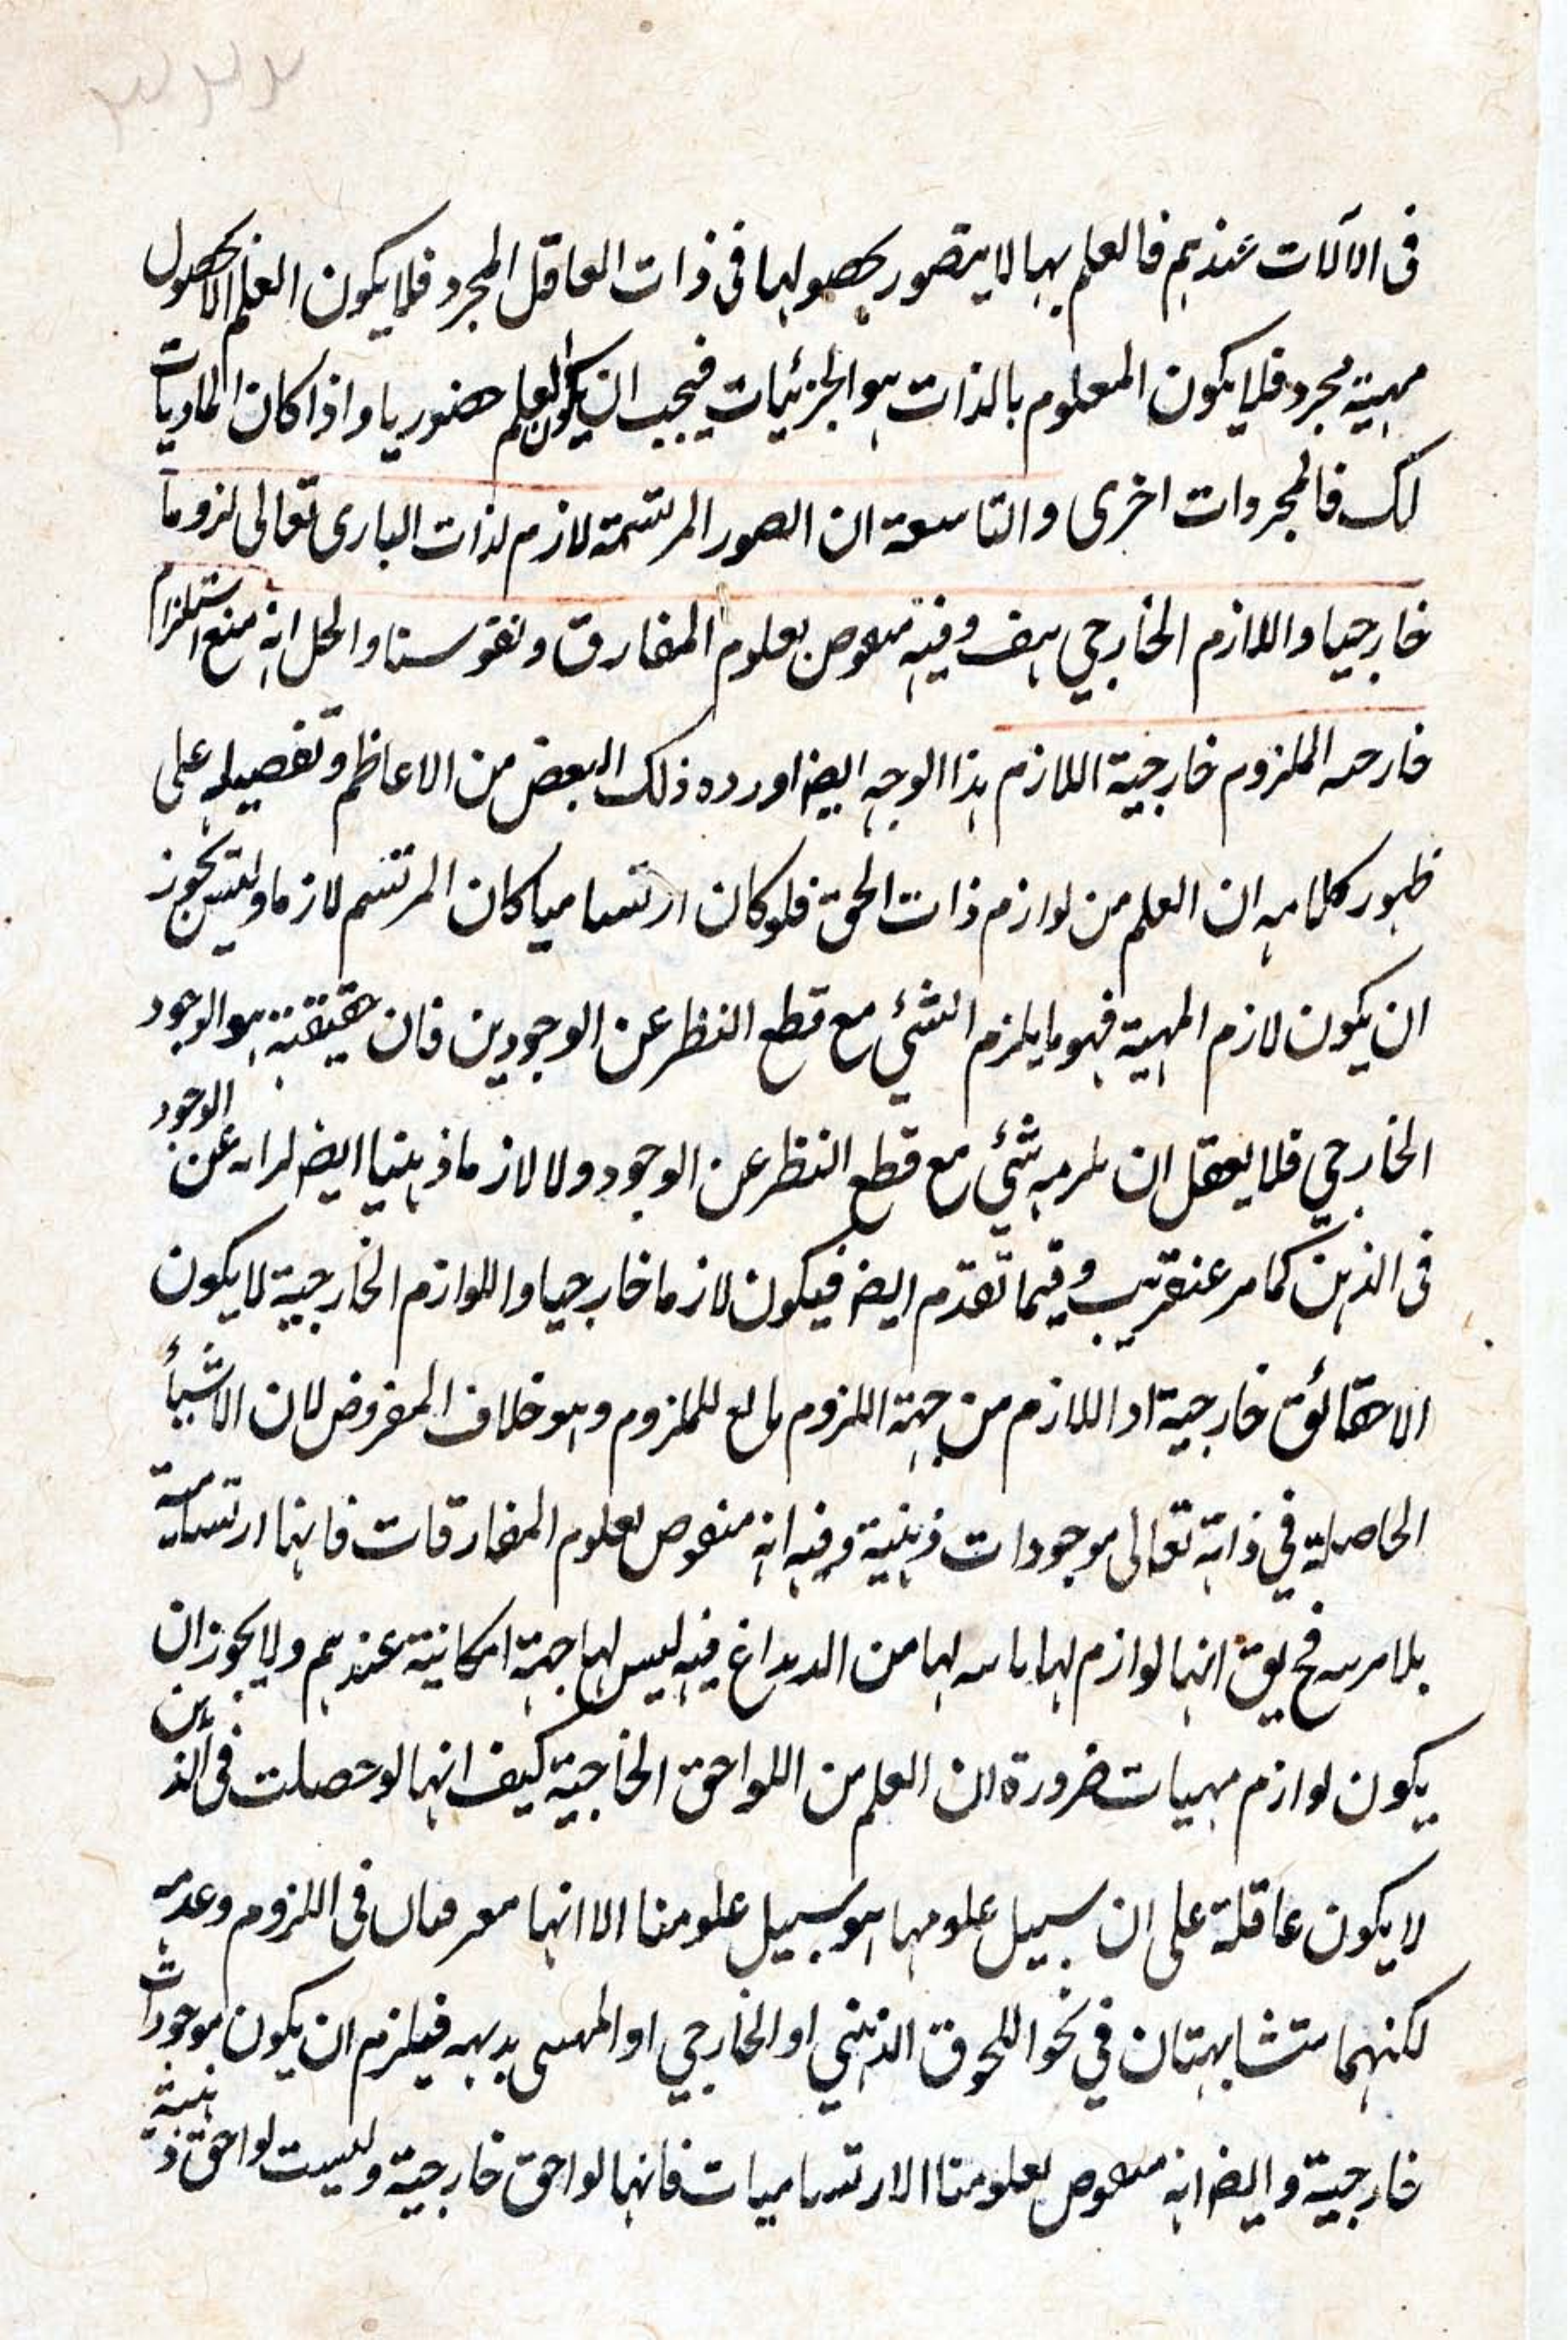 في الآلات عندهم فالعلم بها لا يتصور بحصولها في ذات العاقل المجرد فلا يكون العلم الا بحصول
مهية مجرد فلا يكون المعلوم بالذات هو الجزئيات فيجب ان يكون العلم حضوريا واذا كان الماديات
لك فالمجردات اخرى والتاسعة ان الصور المرتسمة لازم لذات الباري تعالى لزوماً
خارجيا واللازم الخارجي هف وفيه منقوض بعلوم المفارق ونفوسنا والحل انه منع استلزام
خارجية الملزوم خارجية اللازم هذا الوجه ايضا اورده ذلك البعض من الاعاظم وتفصيله على
ظهور كلامه ان العلم من لوازم ذات الحق فلو كان ارتساميا كان المرتسم لازما وليس يجوز
ان يكون لازم المهية فهو ما يلزم الشئي مع قطع النظر عن الوجودين فان حقيقته هو الوجود
الخارجي فلا يعقل ان يلزمه شئي مع قطع النظر عن الوجود ولا لازما ذهنيا ايضا عن الوجود
في الذهن كما مر عنقريب وفيما تقدم ايضا فيكون لازما خارجيا واللوازم الخارجية لا يكون
الا حقائق خارجية اذ اللازم من جهة اللزوم تابع للملزوم وهو خلاف المفروض لان الاشياء
الحاصلة في ذاته تعالى موجودات ذهنية وفيه انه منقوض بعلوم المفارقات فانها ارتسامية
بلا مرية فح يق انها لوازم لها من الابداع فيه ليس لها جهة امكانية عندهم ولا يجوز ان
يكون لوازم مهيات ضرورة ان العلم من اللواحق الخارجية كيف انها لو حصلت في الذهن
لا يكون عاقلة على ان سبيل علومها هو سبيل علومنا الا انها معرفتان في اللزوم وعدمه
لكنهما متشابهتان في نحو اللحوق الذهني او الخارجي او المهيي بديهة فيلزم ان يكون موجودات
خارجية وايضا انه منقوض بعلومنا الارتساميات فانها لواحق خارجية وليست لواحق ذهنية